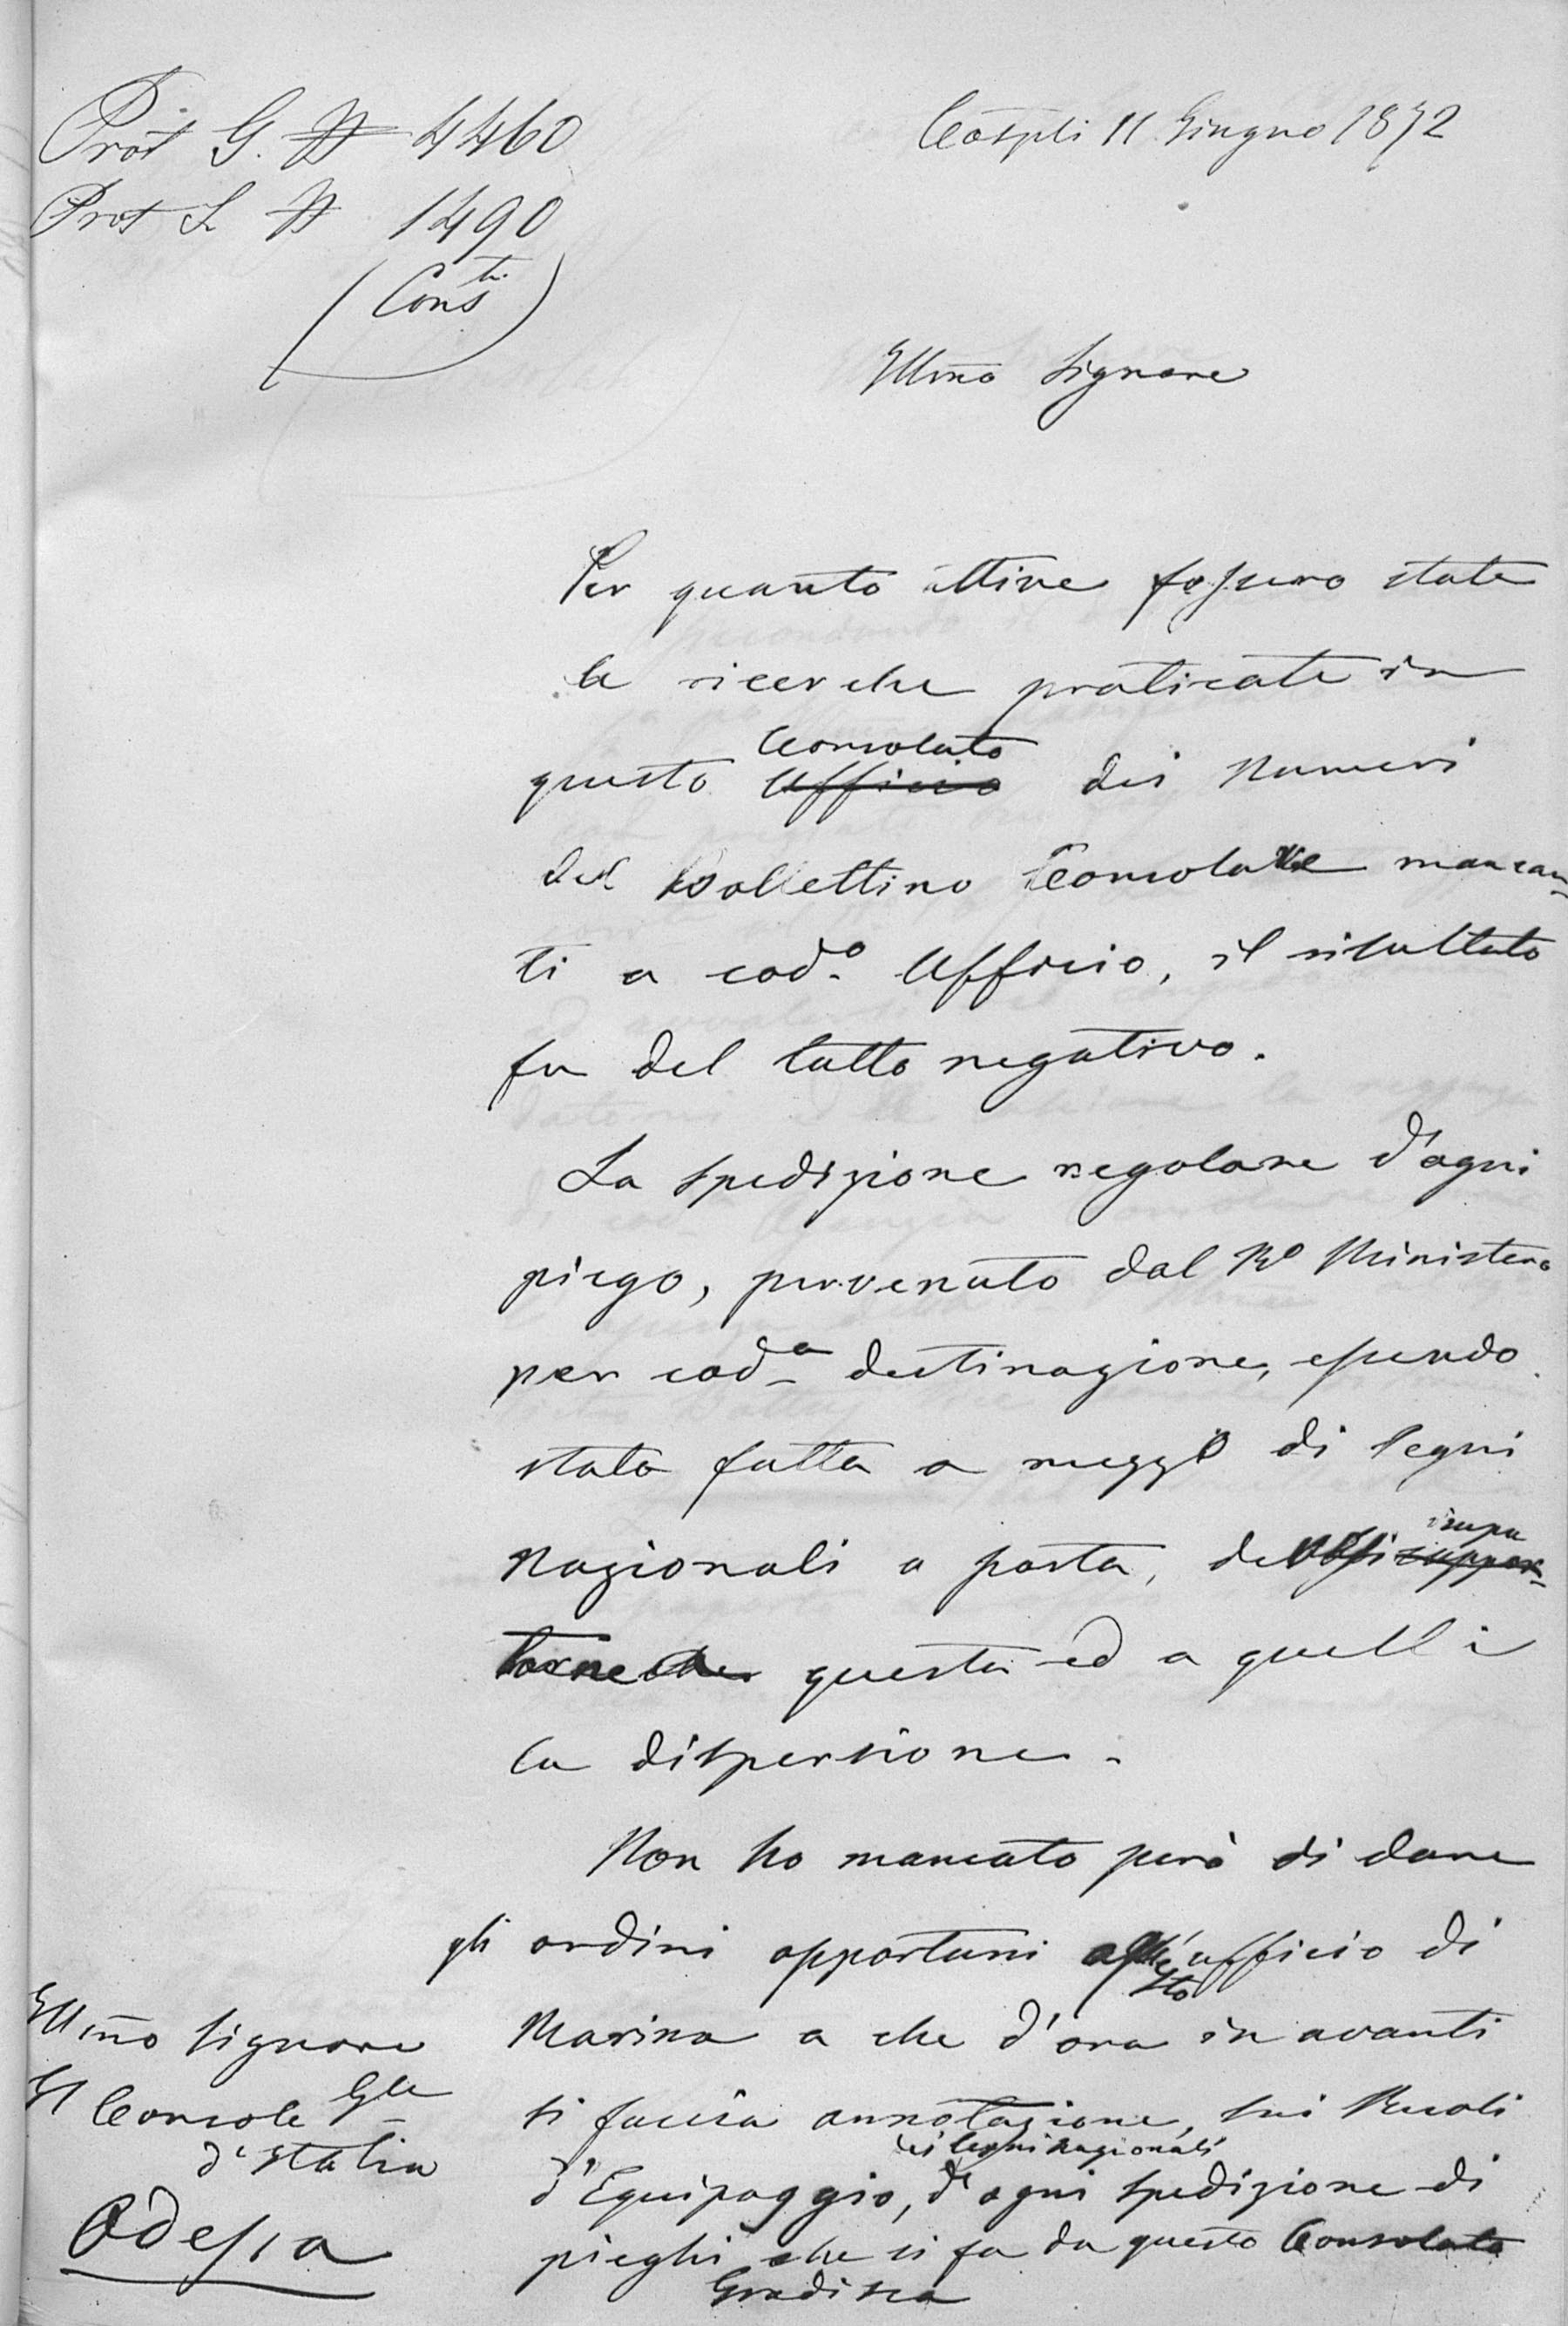 Prot G. N 4460
Prot L N 1490
(Cons.ti)
Cospli 11 Giugno 1872
Illmo Signore
Per quanto attive fossero state
le ricerche praticate in
questo Consolato Ufficio dei numeri
del Bollettino Consolare mancan-
ti a cod.o Ufficio, il risultato
fu del tutto negativo.
La spedizione regolare d'ogni
piego, pervenuto dal Ro Ministero
per cod.a destinazione, essendo
stata fatta a mezzo di legni
nazionali a posta,
questa ed a quelli
la dispersione.
Non ho mancato però di dare
gli ordini opportuni a questo ufficio di
Marina a che d'ora in avanti
si faccia annotazione, sui Ruoli
d'Equipaggio, dei legni nazionali d'ogni spedizione di
pieghi che si fa da questo Consolato
Gradisca
Illmo Signore
Il Console Gle
d'Italia
Odessa